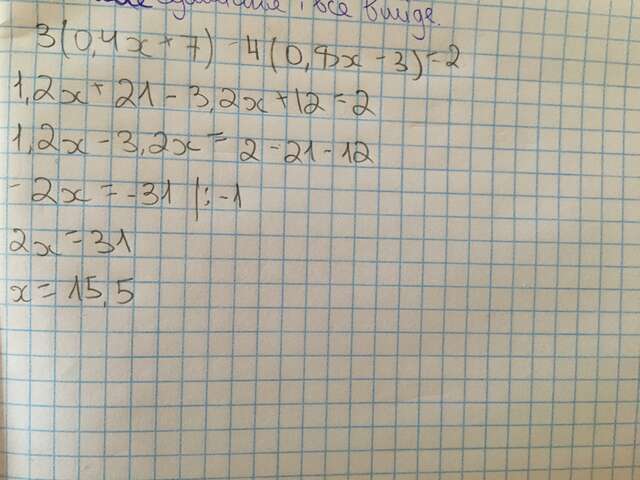 уравнение, все в виде.
3(0,4x + 7) - 4(0,8x - 3) = 2
1,2x + 21 - 3,2x + 12 = 2
1,2x - 3,2x = 2 - 21 - 12
- 2x = -31 |: -1
2x = 31
x = 15,5